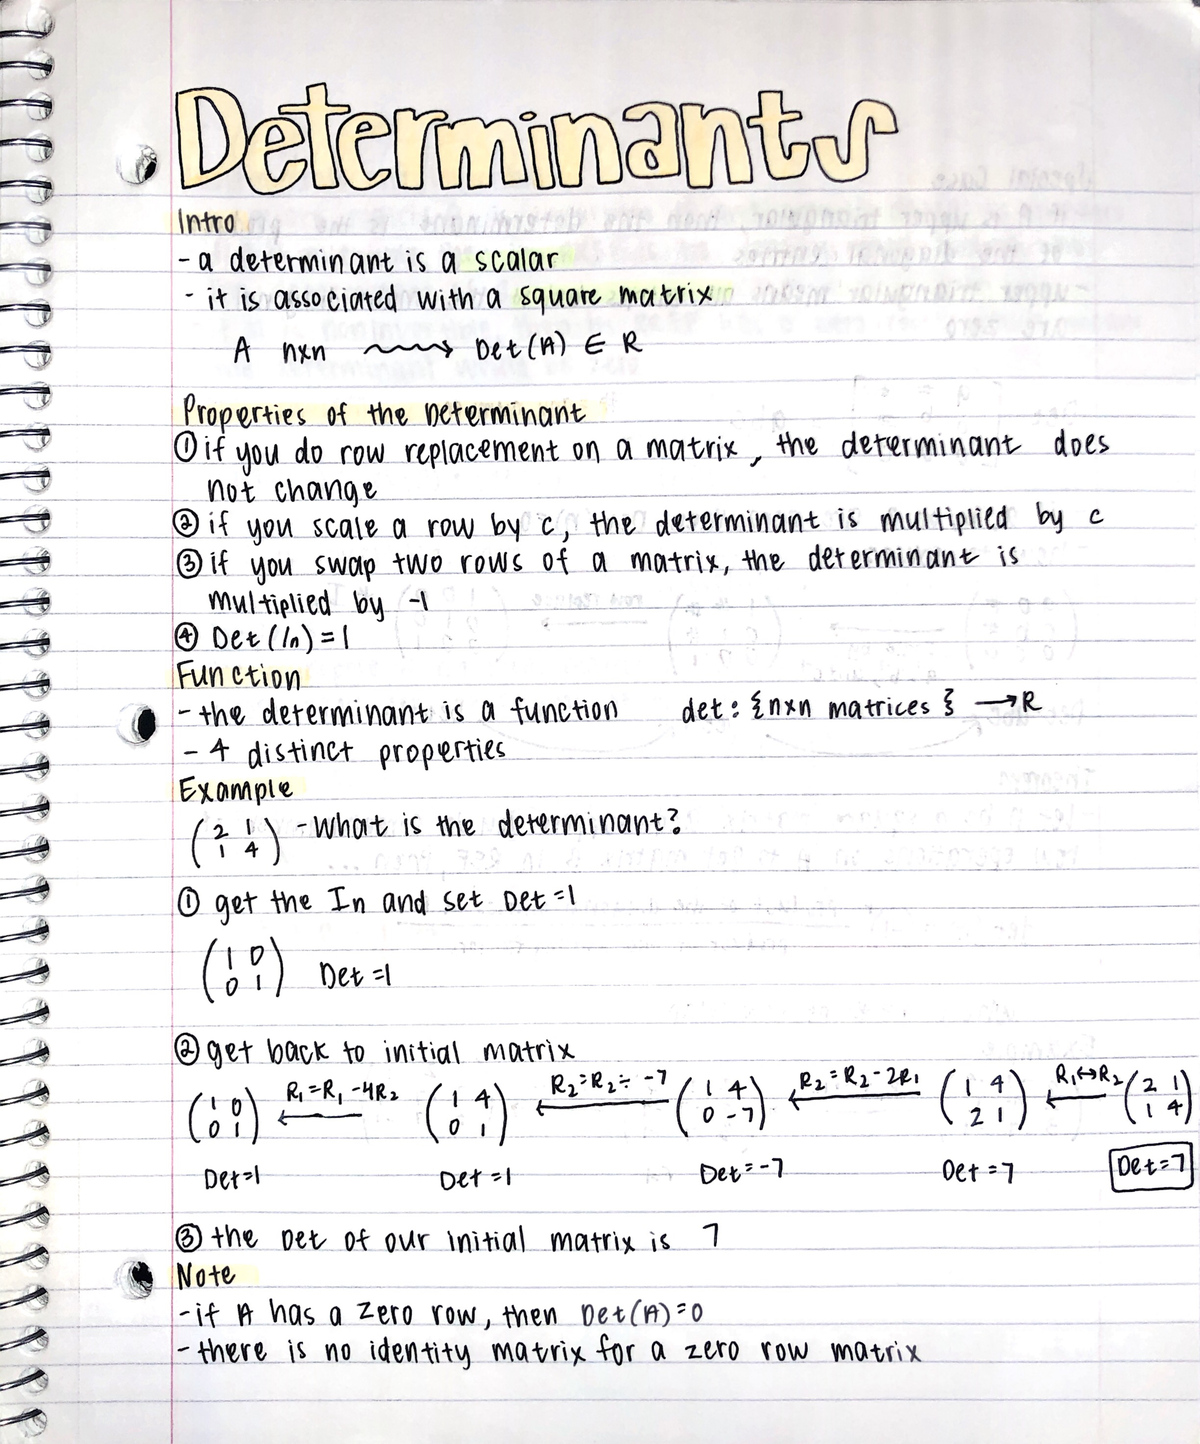 Determinants
Intro
- a determinant is a scalar
- it is associated with a square matrix
A nxn ⟿ Det(A) ∈ R
Properties of the Determinant
① if you do row replacement on a matrix, the determinant does
not change
② if you scale a row by c, the determinant is multiplied by c
③ if you swap two rows of a matrix, the determinant is
multiplied by -1
④ Det(In) = 1
Function
- the determinant is a function det: {nxn matrices} → R
- 4 distinct properties
Example
(2 1
1 4) - What is the determinant?
① get the In and set Det = 1
(1 0
0 1) Det = 1
② get back to initial matrix
R₁=R₁-4R₂ R₂=R₂÷-7 R₂=R₂-2R₁ R₁↔R₂
(1 0 ← (1 4 ← (1 4 ← (1 4 ← (2 1
0 1) 0 1) 0 -7) 2 1) 1 4)
Det=1 Det=1 Det=-7 Det=7 Det=7
③ the Det of our initial matrix is 7
Note
- if A has a zero row, then Det(A)=0
- there is no identity matrix for a zero row matrix